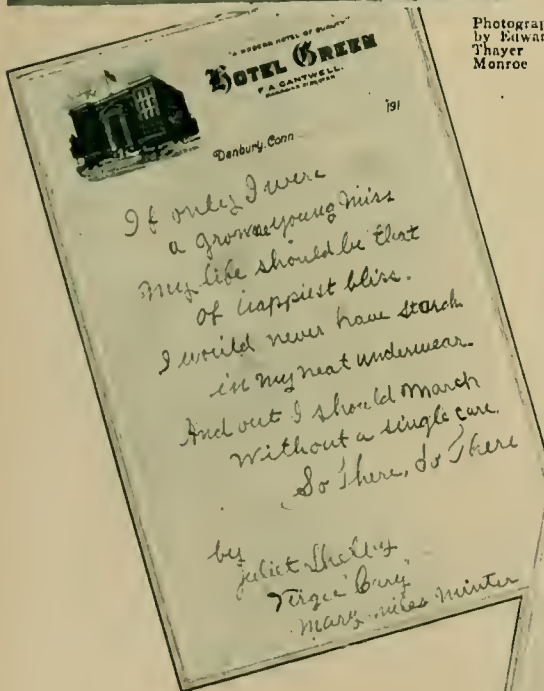 Photograph
by Edward
Thayer
Monroe
"A MODERN HOTEL OF QUALITY"
HOTEL GREEN
F. A. CANTWELL,
MANAGING DIRECTOR
Danbury, Conn 191
If only I were
a grown young miss
My life should be that
of happiest bliss.
I would never have starch
in my neat underwear.
And out I should march
Without a single care.
So There, So There
by
Juliet Shelby
Mary Miles Minter